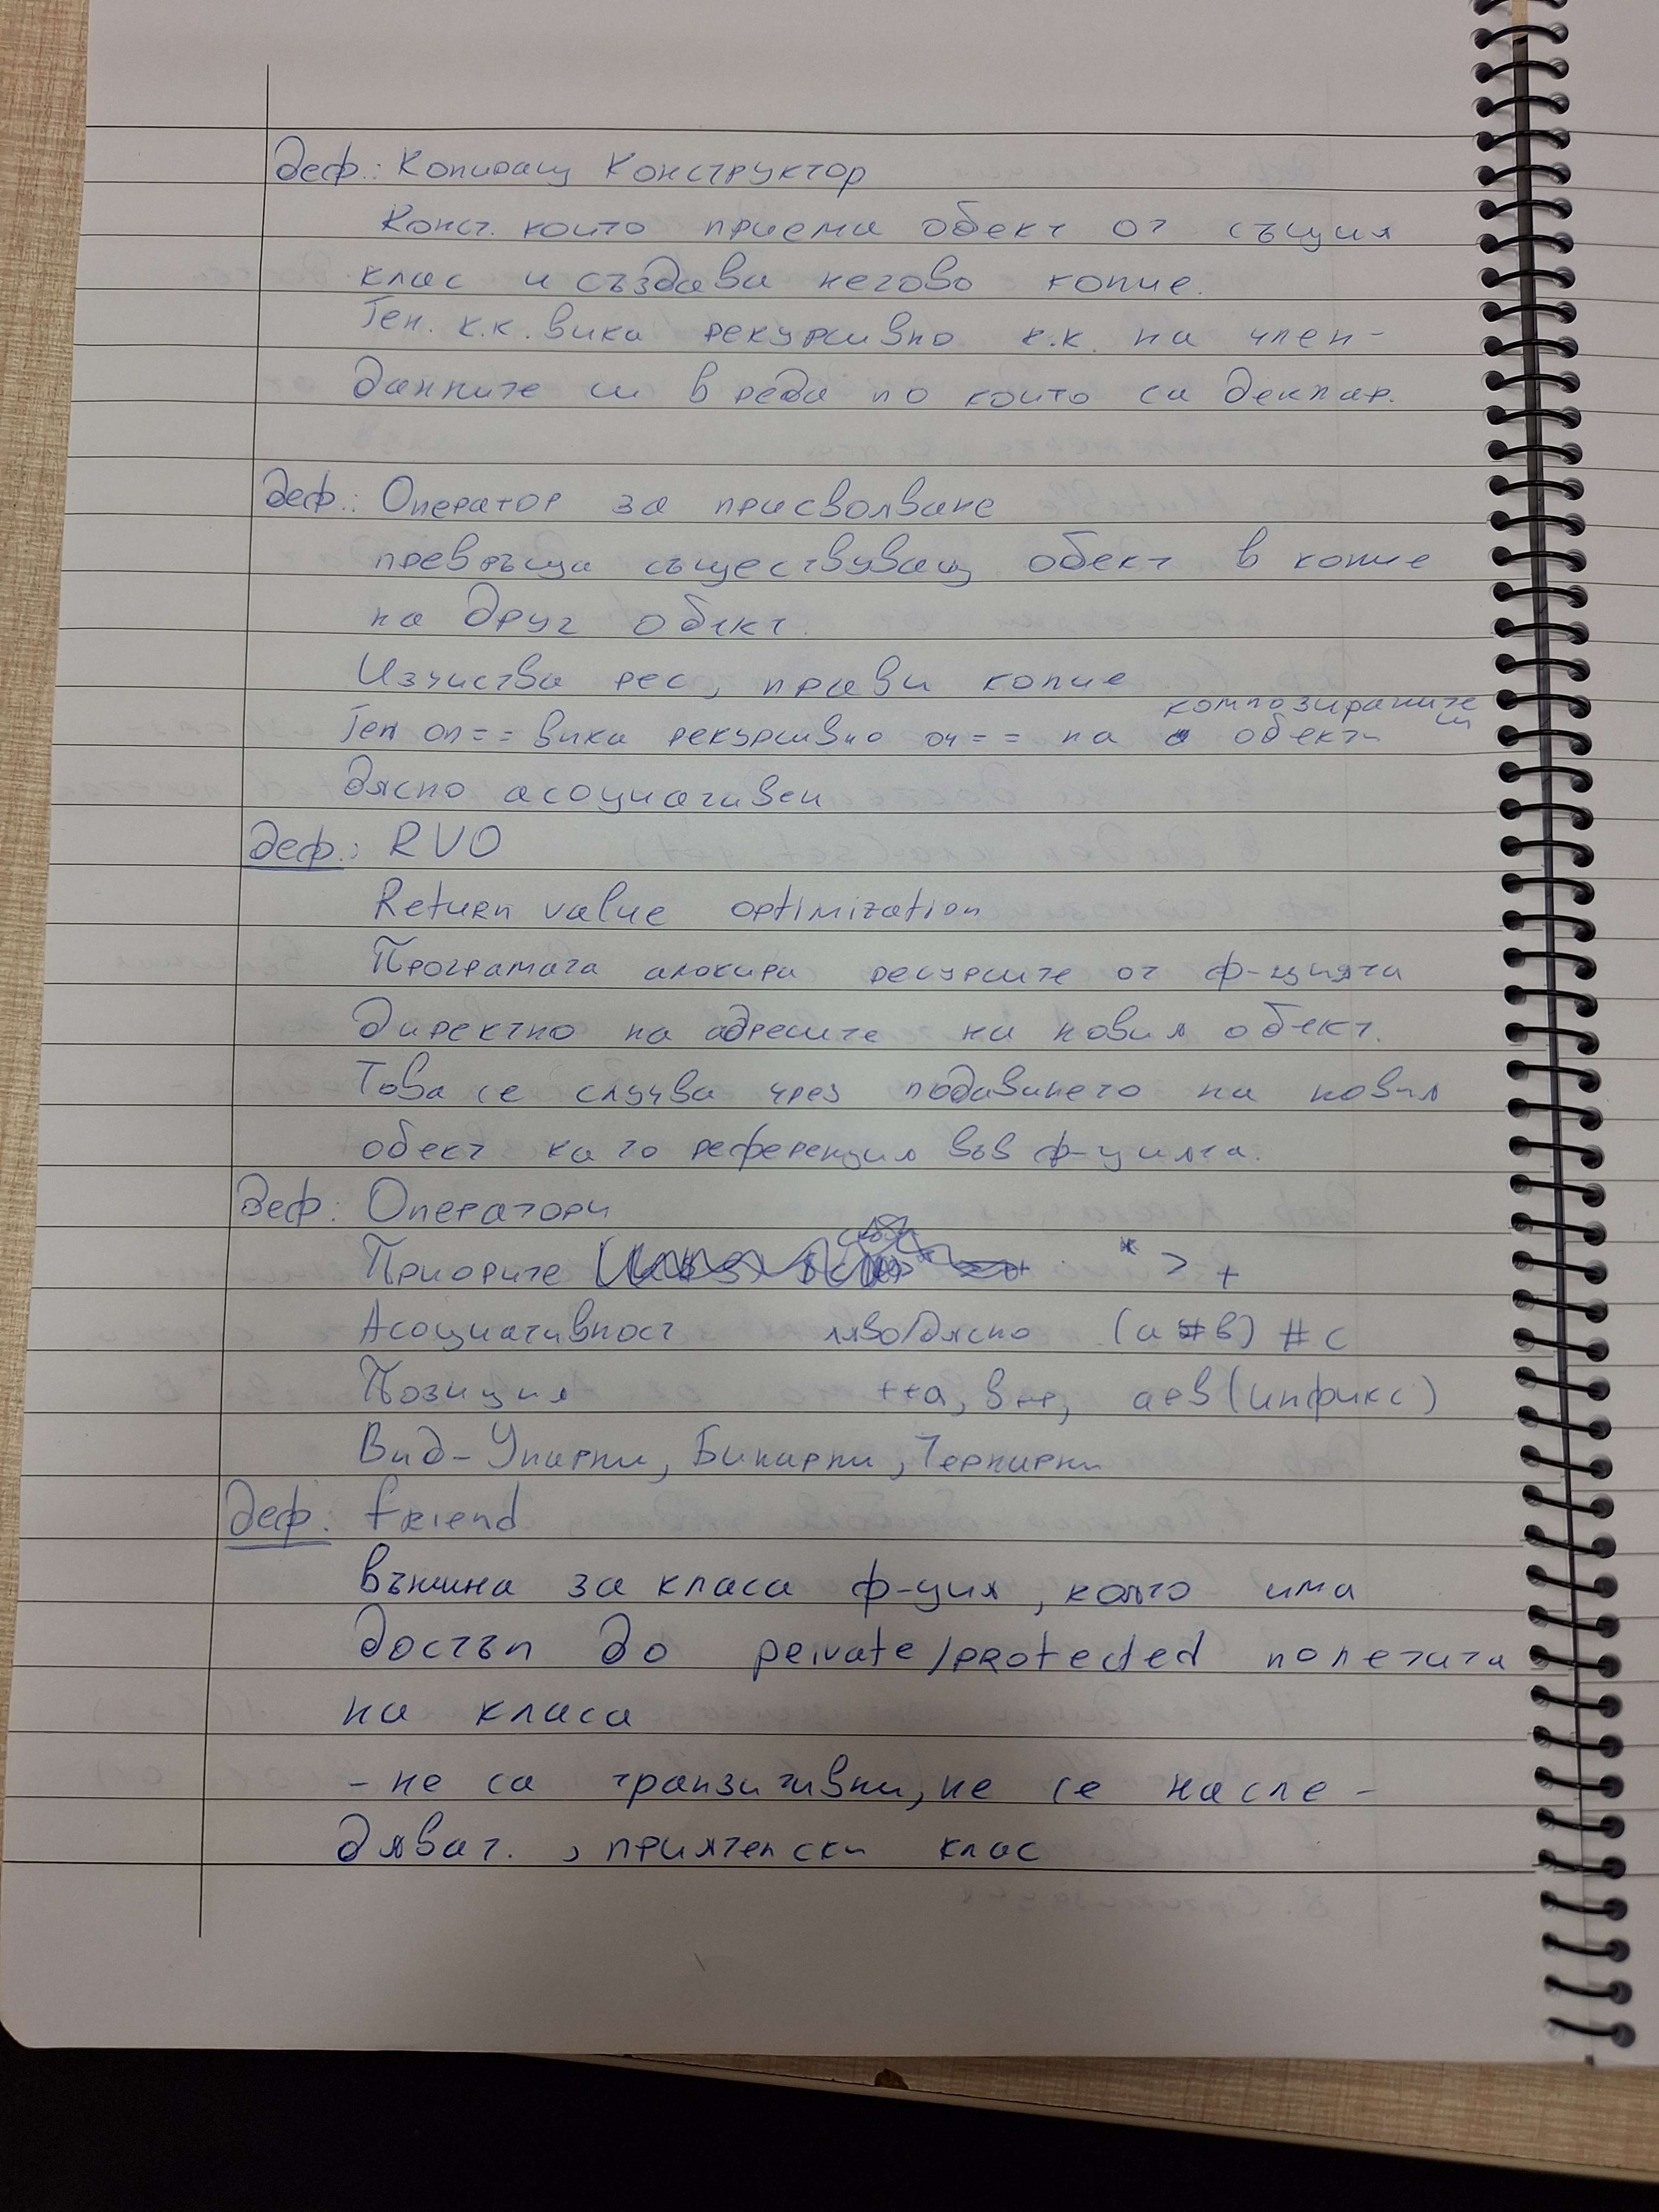 деф.: Копиращ Конструктор
Конст. които приема обект от същия
клас и създава негово копие.
Ген. к.к. вика рекурсивно к.к. на член-
данните ѝ в реда по които са деклар.
деф.: Оператор за присвояване
превръща съществуващ обект в копие
на друг обект.
Изчиства рес, прави копие
композираните
Ген оп== вика рекурсивно оп== на обекти ѝ
дясно асоциативен
деф.: RVO
Return value optimization
Програмата алокира ресурсите от ф-цията
директно на адресите на новия обект.
Това се случва чрез подаването на новия
обект като референция във ф-цията.
деф: Оператори
Приорите * > +
Асоциативност ляво/дясно (a # b) # c
Позиция ++a, b++, a+b (инфикс)
Вид - Унарни, Бинарни, Тернарни
деф: friend
външна за класа ф-ция, която има
достъп до private/protected полетата
на класа
- не са транзитивни, не се насле-
дяват. , приятелски клас